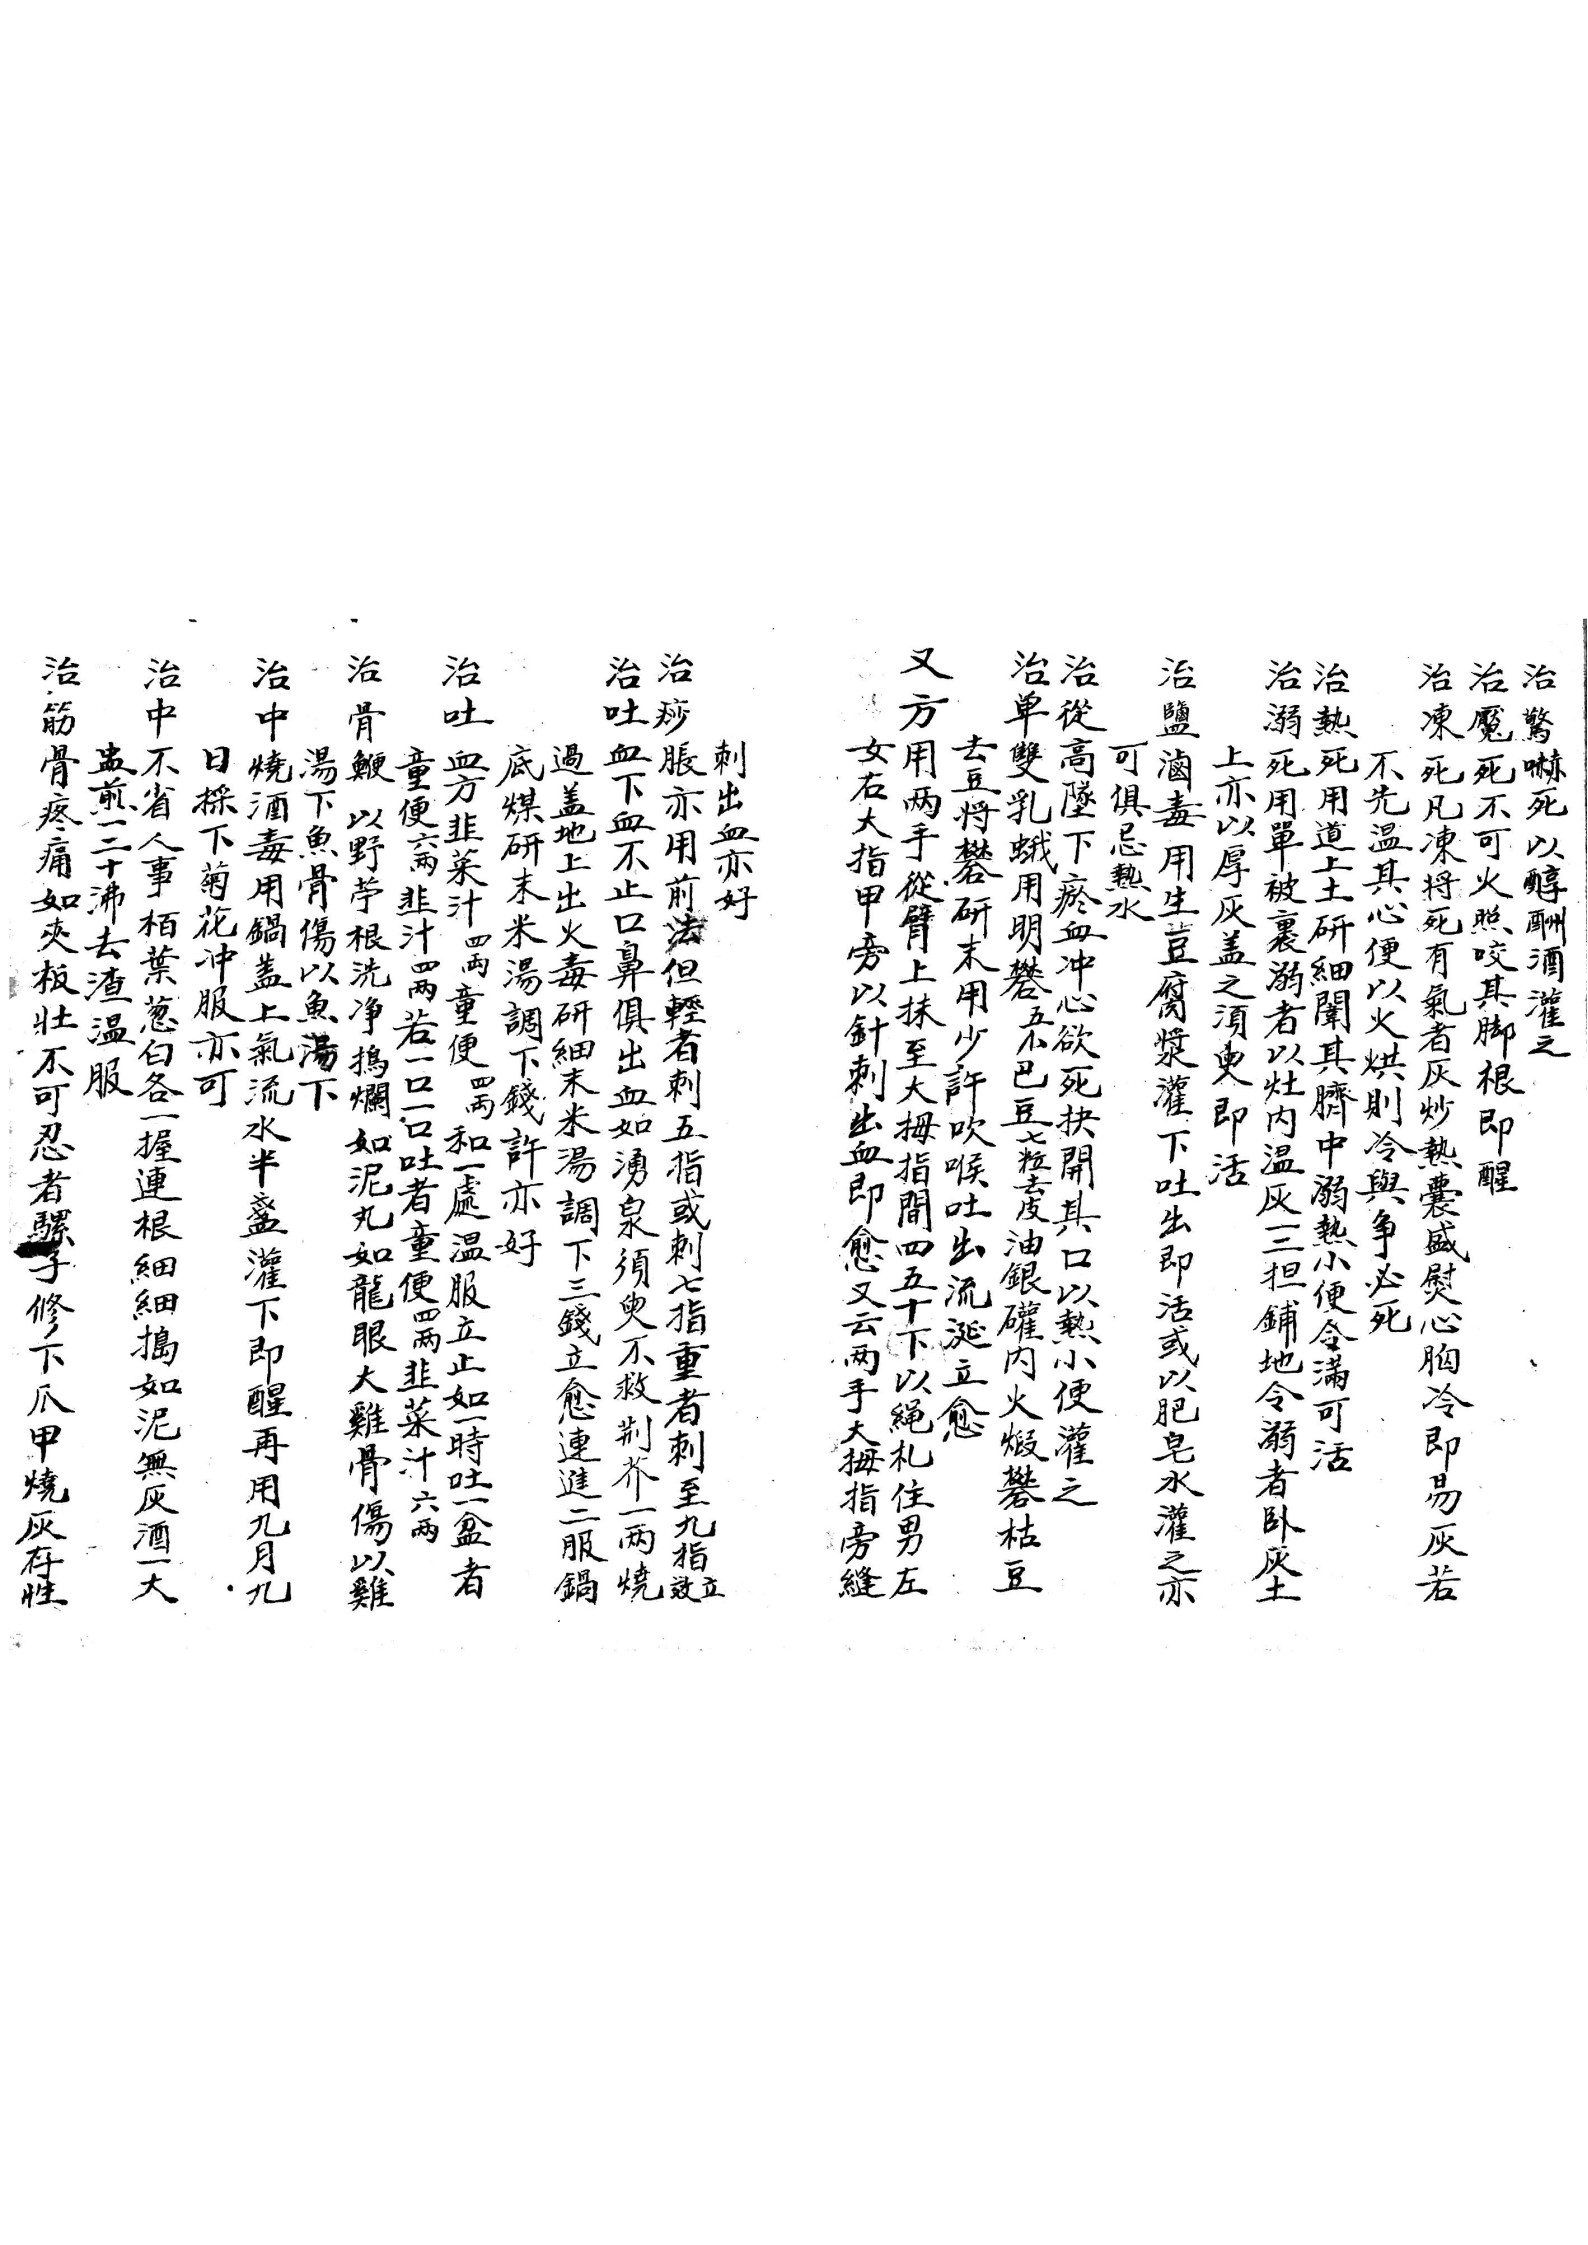 治驚嚇死以醇酬酒灌之
治魘死不可火照咬其脚根即醒
治凍死凡凍将死有氣者灰炒熱囊盛熨心胸冷即易灰若
不先温其心便以火烘則冷與争必死
治熱死用道上土研細闈其臍中溺熱小便令滿可活
治溺死用單被裹溺者以灶内温灰一二担鋪地令溺者卧灰土
上亦以厚灰盖之須臾即活
治鹽滷毒用生荳腐漿灌下吐出即活或以肥皂水灌之亦
可俱忌熱水
治從高墜下瘀血冲心欲死抉開其口以熱小便灌之
治单雙乳蛾用明礬五个巴豆七粒去皮油銀礶内火煅礬枯豆
去豆将礬研末用少許吹喉吐出流涎立愈
又方用两手從臂上抹至大拇指間四五十下以䋲札住男左
女右大指甲旁以針刺出血即愈又云两手大拇指旁縫
刺出血亦好
治痧脹亦用前法但輕者刺五指或刺七指重者刺至九指立效
治吐血下血不止口鼻俱出血如湧泉須臾不救荆芥一两燒
過盖地上出火毒研細末米湯調下三錢立愈連進二服鍋
底煤研末米湯調下錢許亦好
治吐血方韭菜汁四两童便四两和一處温服立止如一時吐一盆者
童便六两韭汁四两若一口一口吐者童便四两韭菜汁六两
治骨鯁以野苧根洗净搗爛如泥丸如龍眼大雞骨傷以雞
湯下魚骨傷以魚湯下
治中燒酒毒用鍋蓋上氣流水半盞灌下即醒再用九月九
日採下菊花冲服亦可
治中不省人事栢葉葱白各一握連根細細搗如泥無灰酒一大
盅煎一二十沸去渣温服
治筋骨疼痛如夾板壯不可忍者騾子修下爪甲燒灰存性